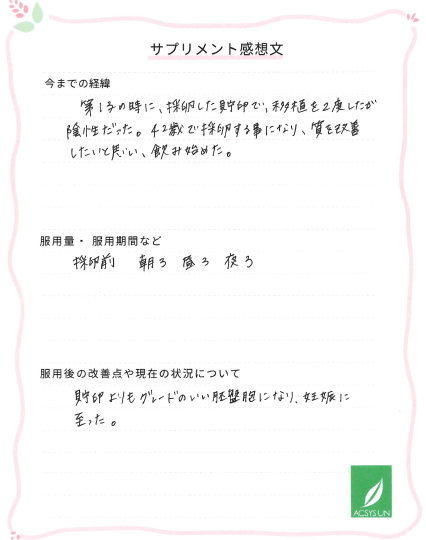 サプリメント感想文
今までの経緯
第1子の時に、採卵した貯卵で、移植を2度したが
陰性だった。42歳で採卵する事になり、質を改善
したいと思い、飲み始めた。
服用量・服用期間など
採卵前 朝3 昼3 夜3
服用後の改善点や現在の状況について
貯卵よりもグレードのいい胚盤胞になり、妊娠に
至った。
ACSYS UN